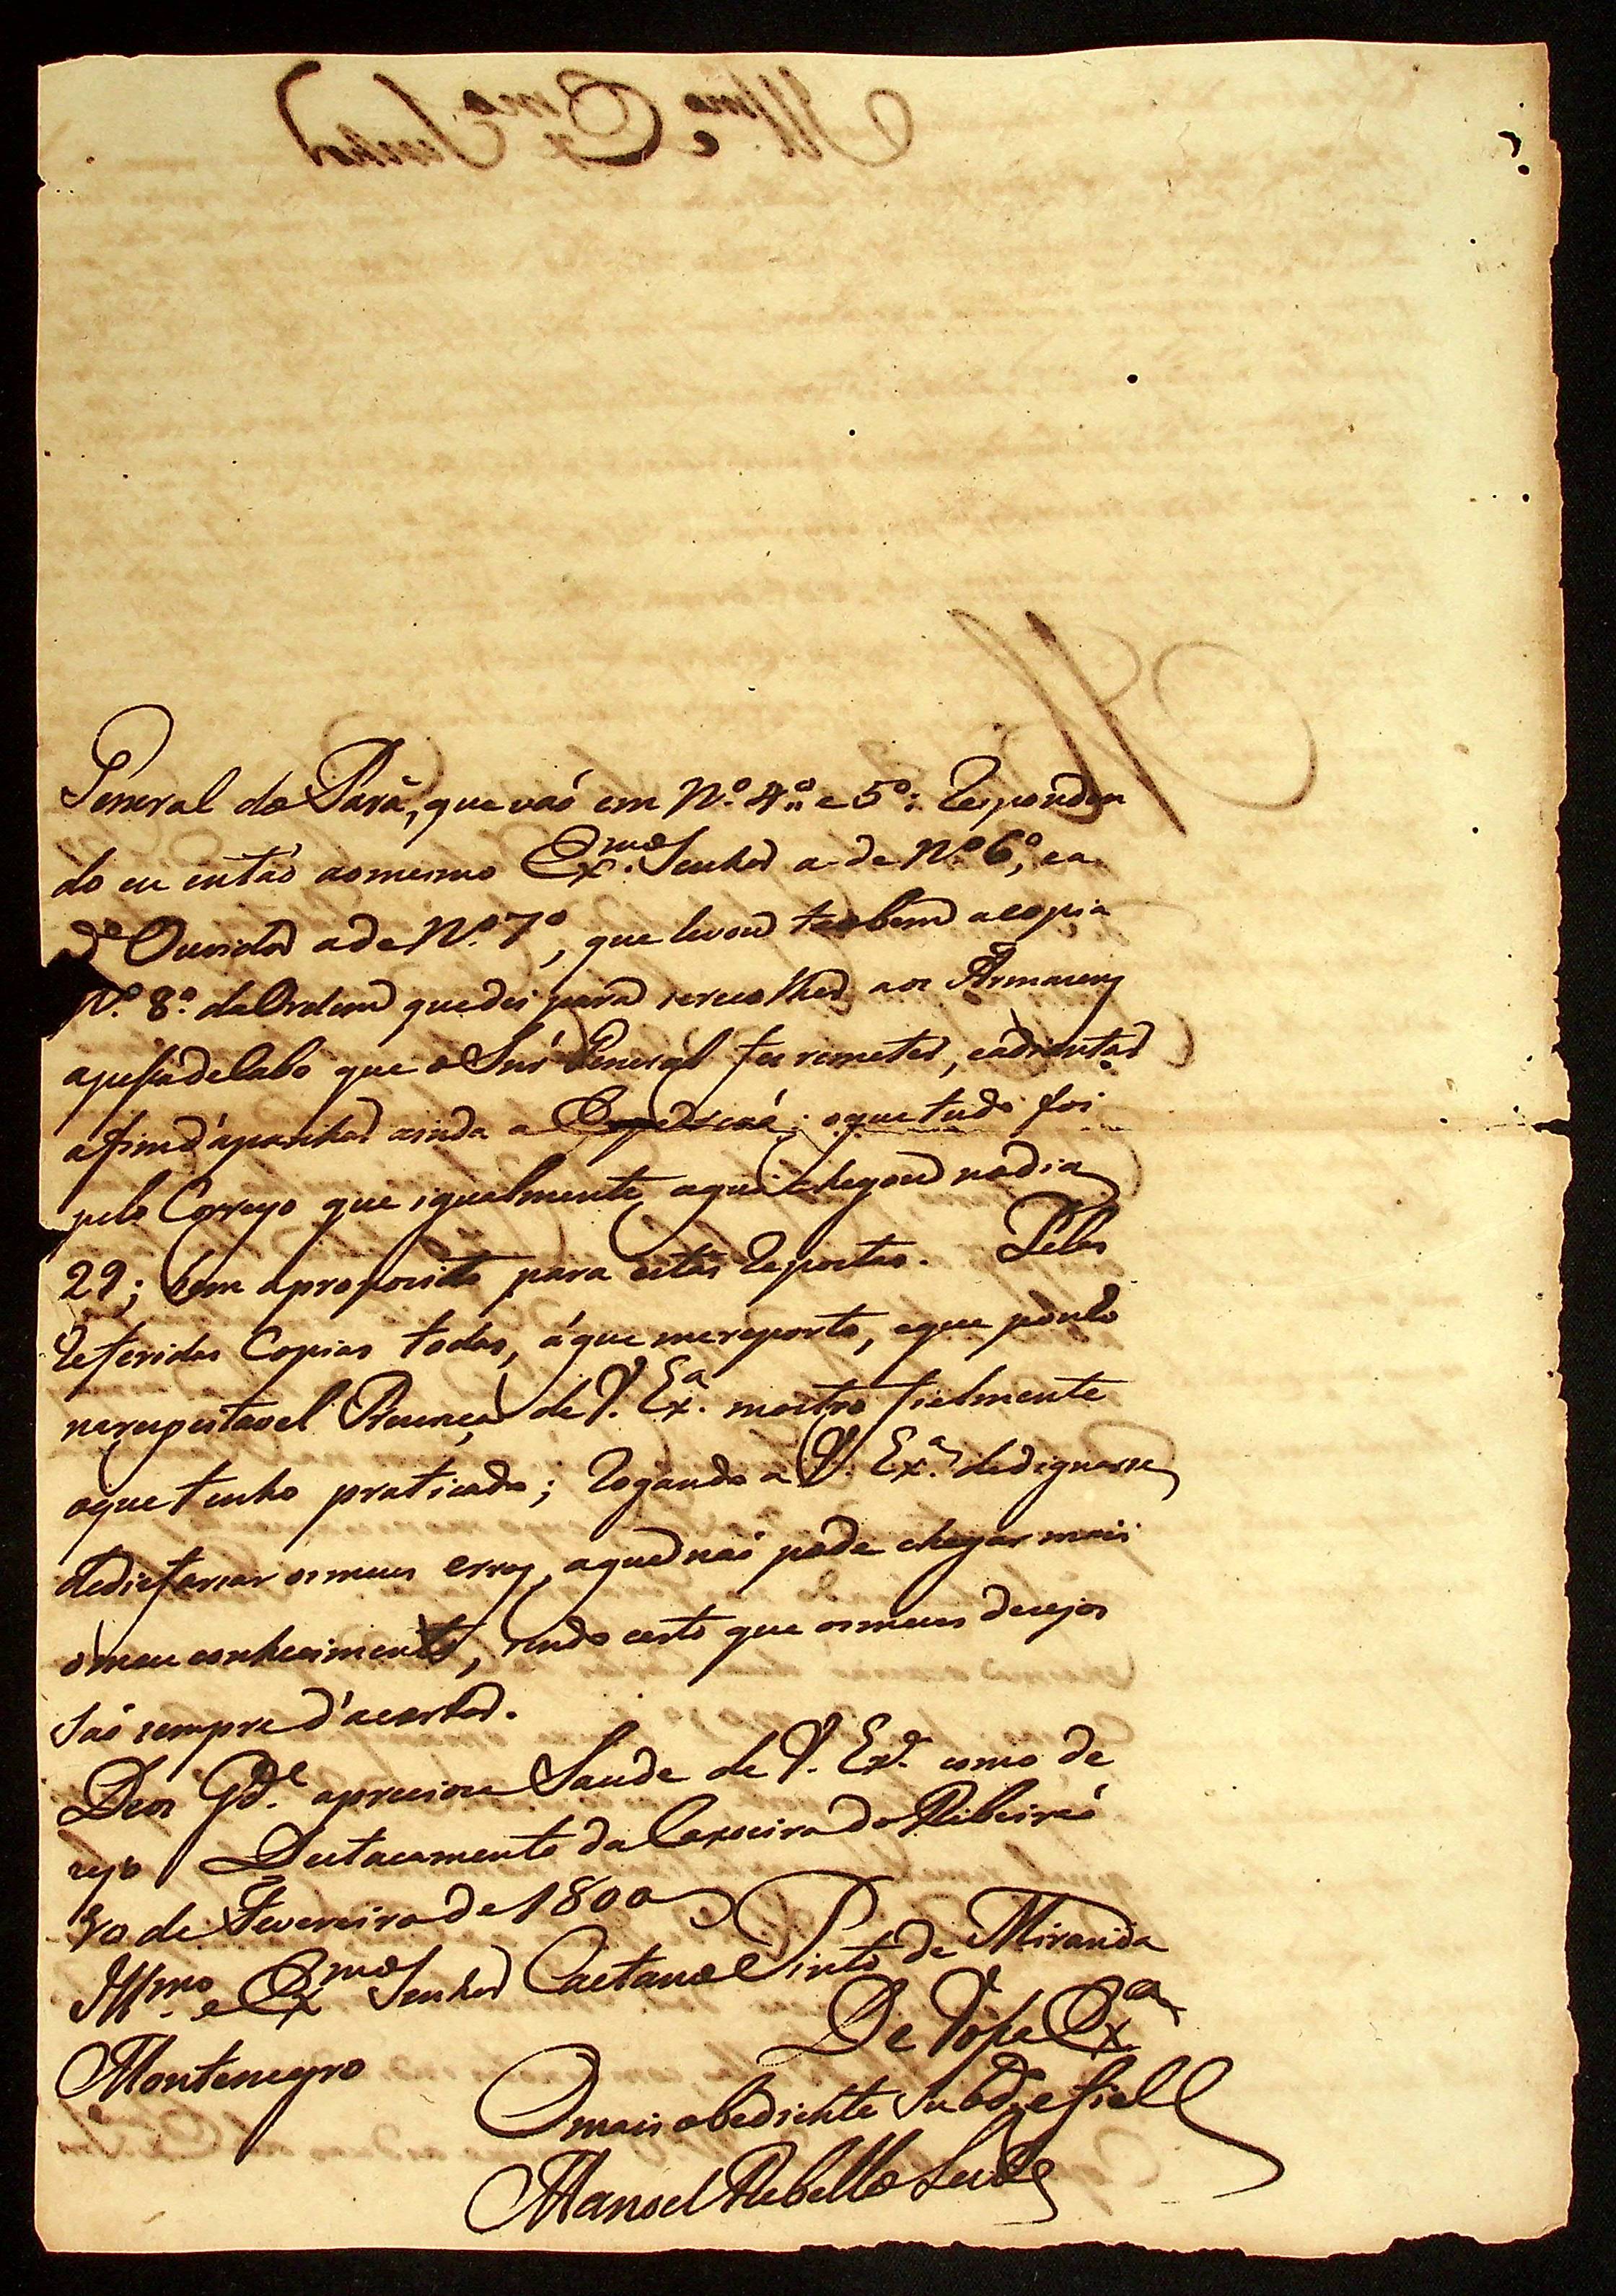 General do Pará, que vaó em N.º 4.º e 5.º: Responden
do eu entaó ao mesmo Ex.mo Senhor a de N.º 6.º, e a
d.º Ouvidor a de N.º 7.º, que levou tãobem a copia
N.º 8.º da Ordem que dei para se recolher aos Armazens
a pessa de Cabo que o Snr' General fez remeter, e adiantar
afim d'apanhar ainda a Expediçaó; o que tudo foi
pelo Correyo que igualmente aqui chegou no dia
29; bem a proposito para estas Repostas. Pelas
Referidas Copias todas, á que me reporto, e que ponho
na respeitavel Prezença de V. Ex.ª mostro fielmente
o que tenho praticado; Rogando a V. Ex.ª de dignarse
de disfarsar os meus erros, a que naó pode chegar mais
o meu conhecimento, sendo certo que os meus desejos
saó sempre d'acertar.
Deos G.de a precioza Saude de V. Ex.ª como de
sejo Destacamento da Caxoeira do Ribeiraó
10 de Fevereiro de 1800
Ill.mo e Ex.mo Senhor Caetano Pinto de Miranda
Montenegro
De Vossa Ex.ª
O mais obediente Subd.º e fiel
Manoel Rebello Leite
Ill.mo e Ex.mo Senhor